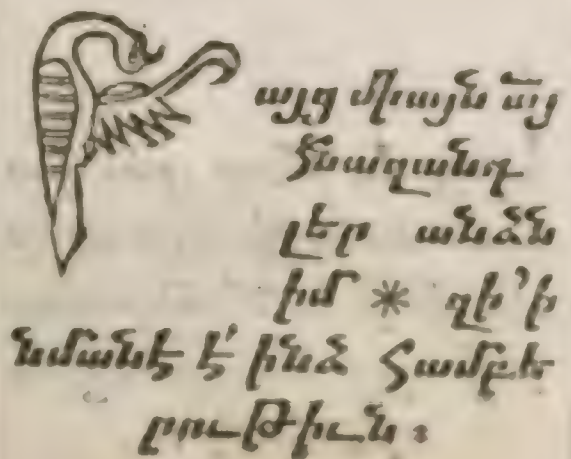 Բայց միայն ա՟յ
հնազանդ
լեր անձն
իմ * զի ՚ի
նմանէ է՛ ինձ համբե
րութիւն ։